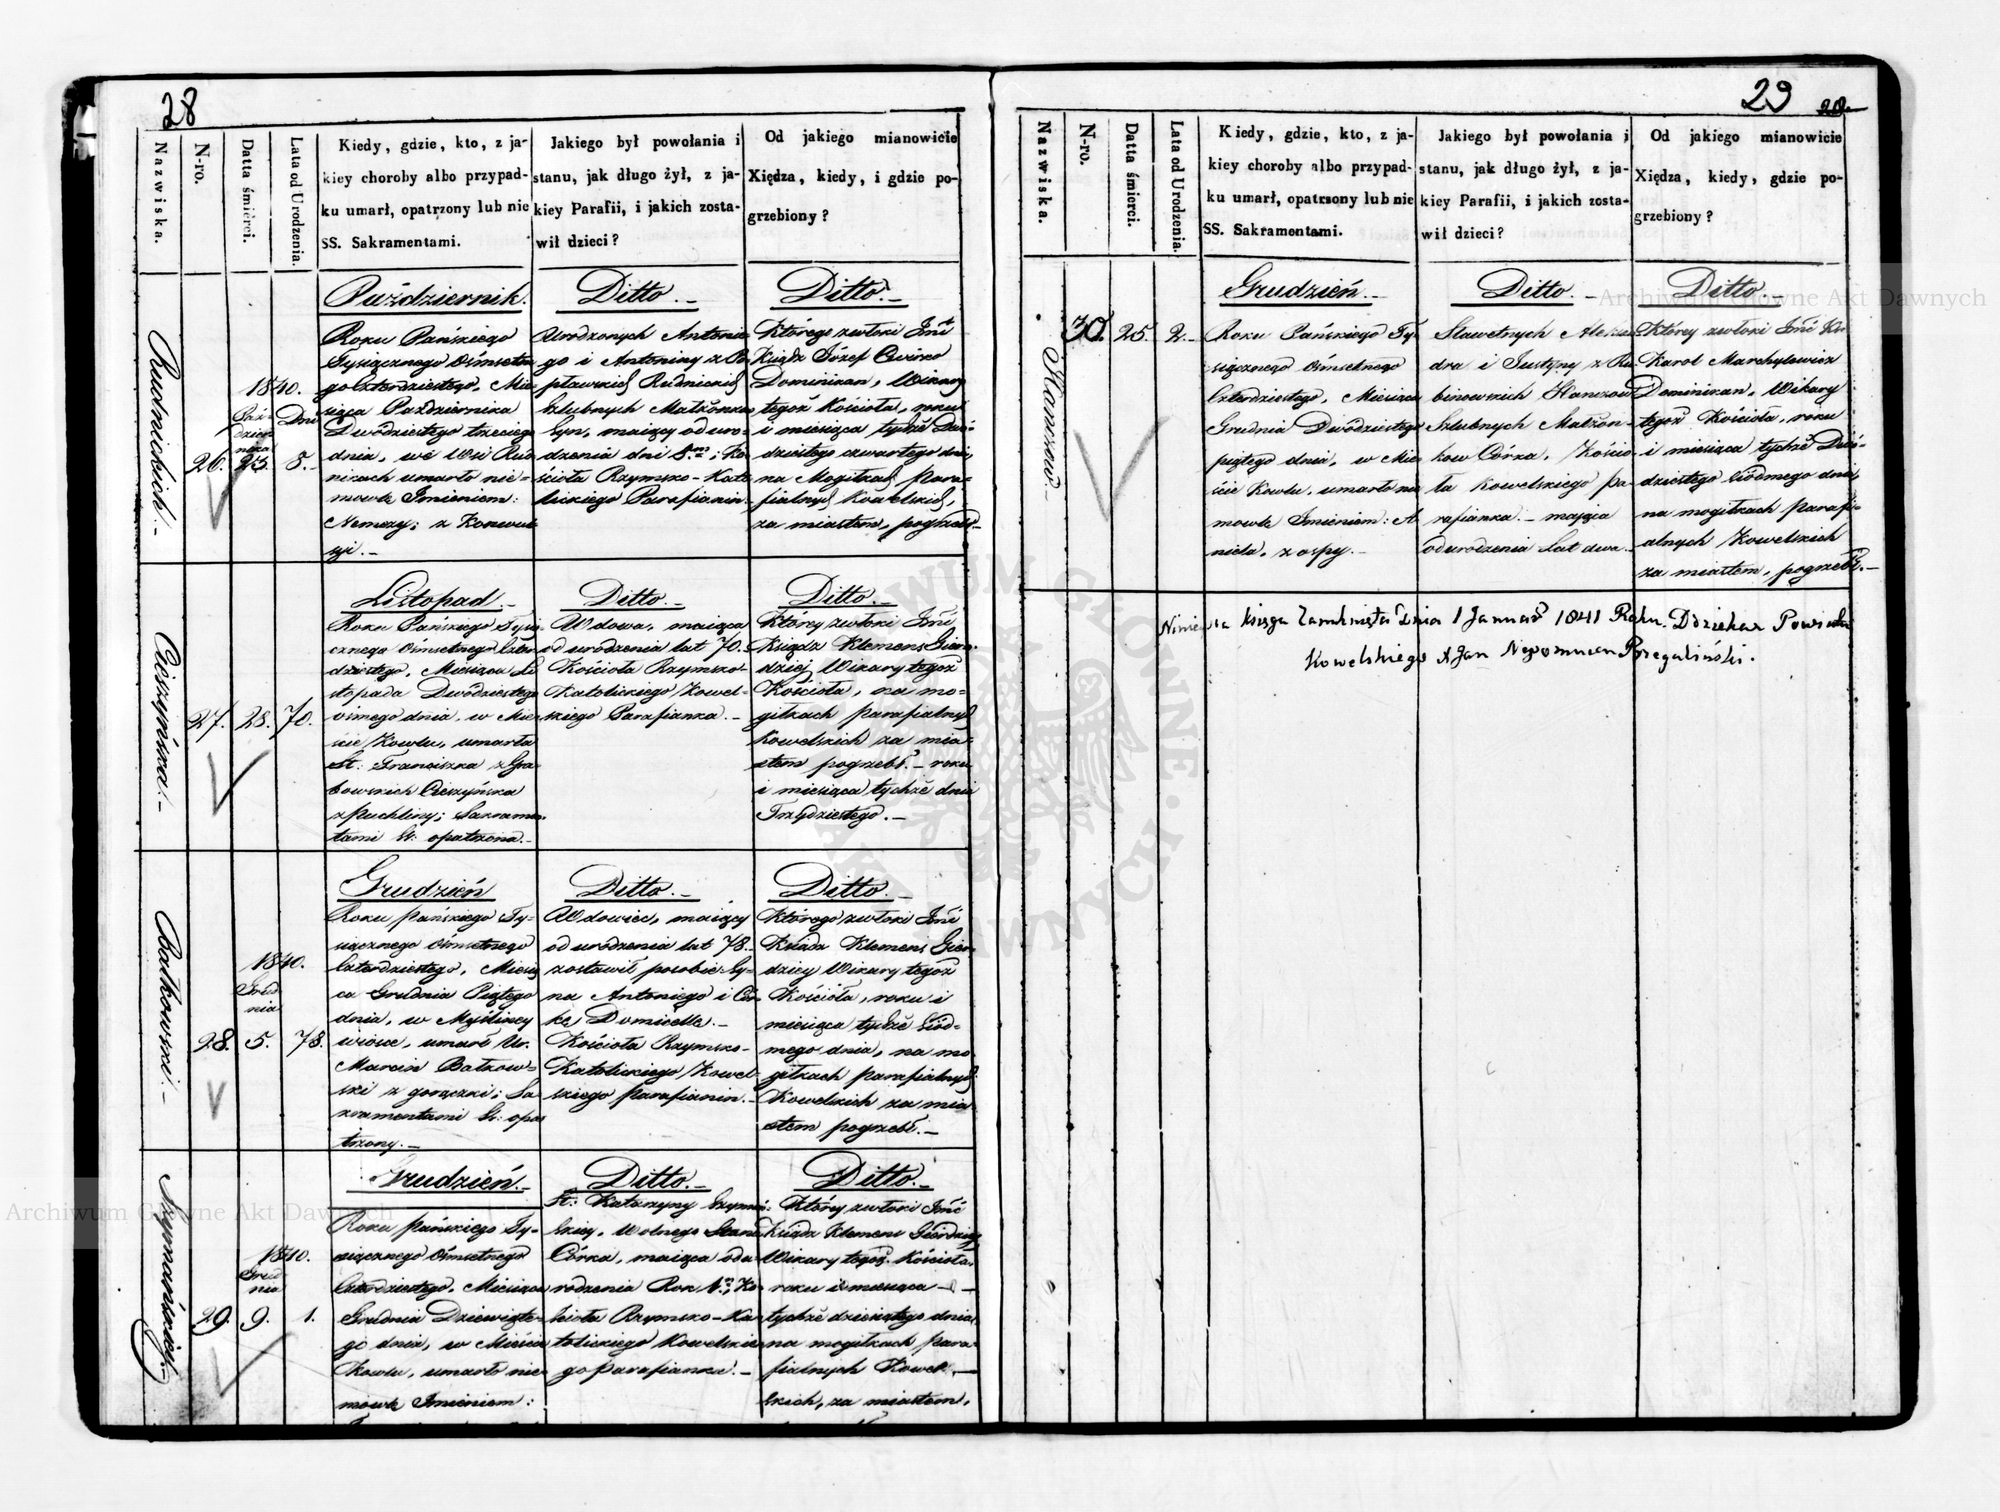 28
Nazwiska.
N-ro.
Datta śmierci.
Lata od Urodzenia.
Kiedy, gdzie, kto, z ja-
kiey choroby albo przypad-
ku umarł, opatrzony lub nie
SS. Sakramentami.
Jakiego był powołania i
stanu, jak długo żył, z ja-
kiey Parafii, i jakich zosta-
wił dzieci?
Od jakiego mianowicie
Xiędza, kiedy, i gdzie po-
grzebiony?
Rudnickich.-
26.
1840.
23.
Dni
8.-
Październik.
Roku Pańskiego
Tysiącznego Ośmsetne
go Czterdziestego, Mie-
siąca Października
Dwódziestego trzeciego
dnia, we Wsi Rud
nikach umarło nie-
mowlę Imieniem:
z Konwul
syi.-
Ditto.-
Urodzonych Antonie-
go i Antoniny z
Rudnickich
Szlubnych Małżonków
Syn, maiący od uro-
dzenia dni 8m; Ko-
ścioła Rzymsko-Kato
lickiego Parafianin.
Ditto.-
Którego zwłoki Jmć
Ksiądz Józef Cwirko
Dominikan, Wikary
tegoż Kościoła, roku
i miesiąca tychże Dwó-
dziestego czwartego dnia,
na Mogiłkach Para-
fialnych Kowelskich,
za miastem, pogrzebł.-
Cieszyńska.-
27.
28.
70.
Listopad.-
Roku Pańskiego Tysią-
cznego Ośmsetnego Czter
dziestego, Miesiąca Li
stopada Dwódziestego
ósmego dnia, w Mie-
ście Kowlu, umarła
St: Franciszka z Gra-
bowskich Cieszyńska
z Puchliny; Sakramen-
tami Ss: opatrzona.-
Ditto.-
Wdowa, maiąca
od urodzenia lat 70.
Kościoła Rzymsko-
Katolickiego Kowel-
skiego Parafianka.-
Ditto.-
Którey zwłoki Jmć
Ksiądz Klemens
Wikary tegoż
Kościoła, na mo-
giłkach parafialnych
Kowelskich za mia-
stem pogrzebł.- roku
i miesiąca tychże dnia
Trzydziestego.-
Bałkowski.-
28.
1840.
Grud
nia
5.
78.
Grudzień
Roku Pańskiego Ty-
siącznego Ośmsetnego
Czterdziestego, Miesią
ca Grudnia Piątego
dnia, w
wiosce, umarł Ur.
Marcin Bałkow-
ski z gorączki; Sa-
kramentami Ss: opa
trzony.-
Ditto.-
Wdowiec, maiący
od urodzenia lat 78.
zostawił po sobie Sy-
na Antoniego i Cór-
kę Domicelę.-
Kościoła Rzymsko-
Katolickiego Kowel-
skiego parafianin.-
Ditto.
Którego zwłoki Jmć
Ksiądz Klemens
Wikary tegoż
Kościoła, roku i
miesiąca tychże Siód-
mego dnia, na mo
giłkach parafialnych
Kowelskich za mia-
stem pogrzebł.-
29.
1840.
Grud
nia
9.
1.
Grudzień.-
Roku Pańskiego Ty-
siącznego Ośmsetnego
Czterdziestego, Miesiąca
Grudnia Dziewiąte-
go dnia, w Mieście
Kowlu, umarło nie-
mowlę Imieniem:
Ditto.-
St: Katarzyny
Wolnego Stanu
Córka, maiąca od u-
rodzenia Rok 1.n; Ko-
ścioła Rzymsko-Ka
tolickiego Kowelskie
go parafianka.-
Ditto.-
Którey zwłoki Jmć
Ksiądz Klemens
Wikary tegoż Kościoła,
roku i miesiąca
tychże dziesiątego dnia,
na mogiłkach para-
fialnych Kowel-
skich, za miastem,
29
Nazwiska.
N-ro.
Datta śmierci.
Lata od Urodzenia.
Kiedy, gdzie, kto, z ja-
kiey choroby albo przypad-
ku umarł, opatrzony lub nie
SS. Sakramentami.
Jakiego był powołania i
stanu, jak długo żył, z ja-
kiey Parafii, i jakich zosta-
wił dzieci?
Od jakiego mianowicie
Xiędza, kiedy, gdzie po-
grzebiony?
30.
25.
2.-
Grudzień.-
Roku Pańskiego Ty-
siącznego Ośmsetnego
Czterdziestego, Miesiąca
Grudnia Dwódziestego
piątego dnia, w Mie
ście Kowlu, umarło nie
mowlę Imieniem: A
niela, z ospy.-
Ditto.-
Sławetnych Alexan
dra i Justyny z Ra
binowskich
Szlubnych Małżon-
ków Córka, Kościo-
ła Kowelskiego pa-
rafianka.- mająca
od urodzenia Lat dwa.
Ditto.-
Którey zwłoki Jmć
Karol Marchylewicz
Dominikan, Wikary
tegoż Kościoła, roku
i miesiąca tychże Dwó-
dziestego siódmego dnia,
na mogiłkach parafi-
alnych Kowelskich
za miastem, pogrzebł.-
Niniejsza księga zamknięta Dnia 1 1841 Roku. Dziekan Powiatu
Kowelskiego X Jan Nepomucen
Archiwum Główne Akt Dawnych
Archiwum Główne Akt Dawnych